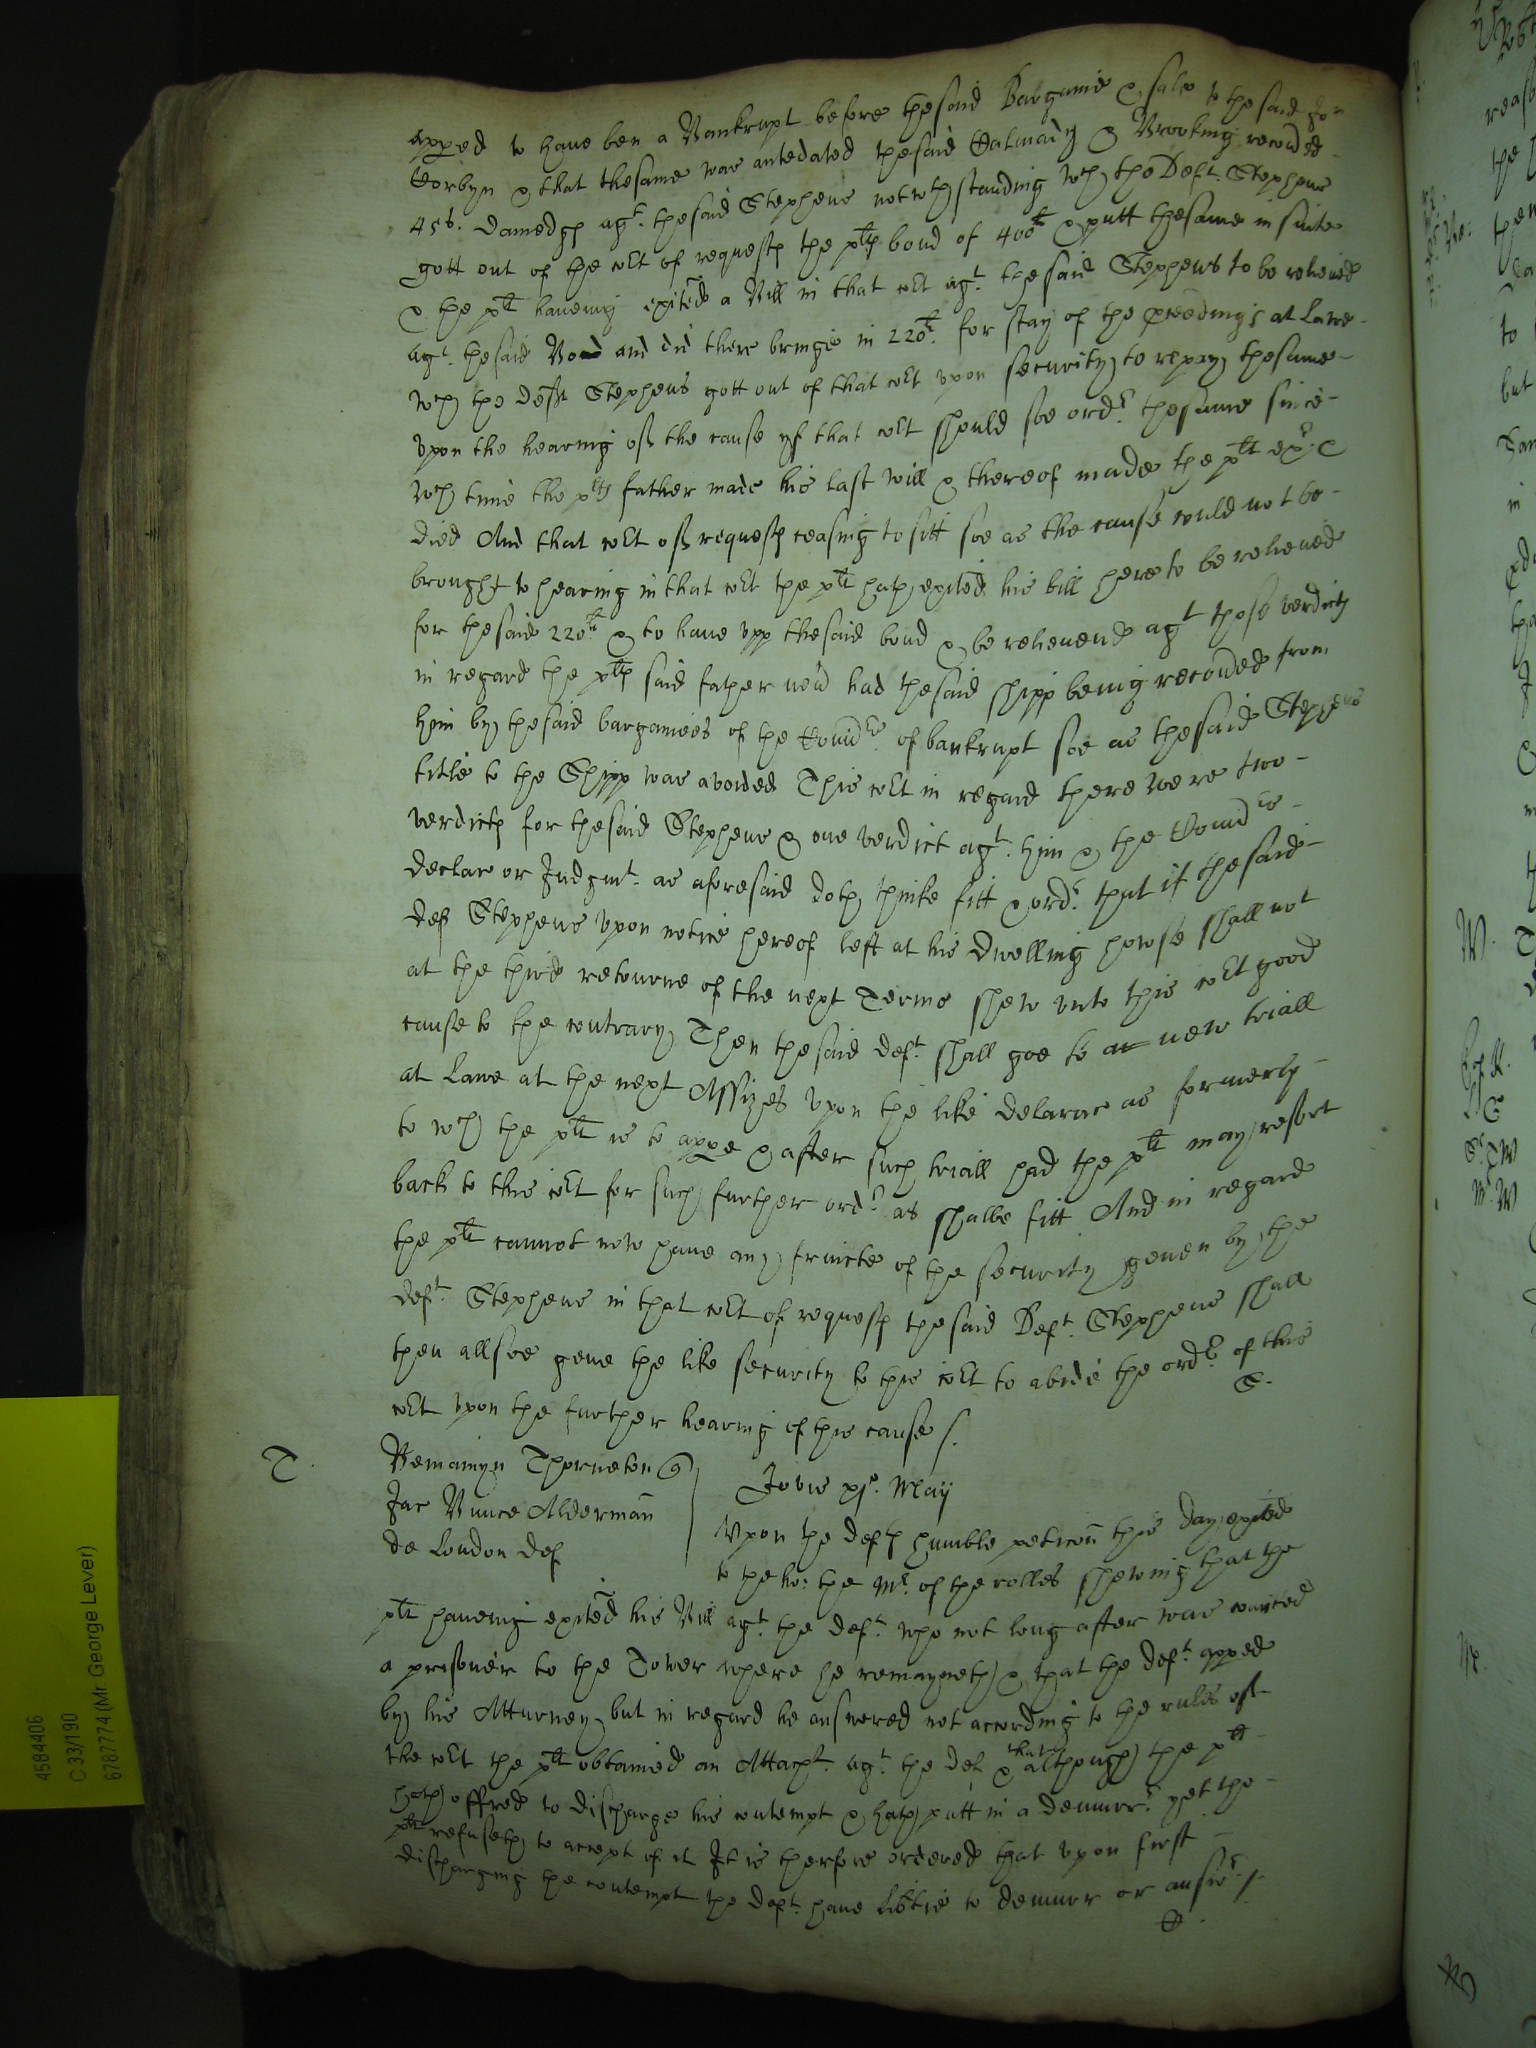 apped to have ben a Bankrupt before the said Bargaine & sale to the said Jo:
Corbyn & that thesame was antedated thesaid Calmady & Brooking recoũed
45li. damedges agt. thesaid Stephens notwthstanding wch the Deft. Stephens
gott out of the cort of requests the plts bond of 400li & putt thesame in suite
& the plt haveing exited a Bill in that cort agt. the said Stephens to be releived
agt. thesaid Bond and did there bringe in 220li. for stay of the pceedings at Lawe
wch the deft Stephens gott out of that cort upon security to repay thesame
upon the hearing of the cause yf that cort should soe ordr. thesame since
wch time the plts father made his last will & thereof made the plt exr. &
died And that cort of requests ceasing to sitt soe as the cause could not be
brought to hearing in that cort the plt hath exited his bill here to be releived
for thesaid 220li & to have upp thesaid bond & be releeved agt those verdicts
in regard the plts said father neũ had thesaid shipp being recoũed from
him by thesaid bargainees of the Comrs. of bankrupt soe as thesaid Stephens
title to the Shipp was avoided This cort in regard there were two
verdicts for thesaid Stephens & one verdict agt. him & the Comrs
declare or Judgmt. as aforesaid doth thinke fitt & ordr. that if thesaid
def Stephens upon notice hereof left at his dwelling howse shall not
at the third retourne of the next Terme shew unto this cort good
cause to the contrary Then thesaid deft. shall goe to a new triall
at Lawe at the next Assizes upon the like delarac as formerly
to wch the plt is to appe & after such triall had the plt may resort
back to this cort for such further ordr. as shalbe fitt And in regard
the plt cannot now have any fruicte of the security geven by the
deft. Stephens in that cort of requests the said Deft. Stephens shall
then allsoe geve the like security to this cort to abide the ordr. of this
cort upon the further hearing of this cause /. S.
T.
Beniamyn Thorneton q
Jac Bunce Alderman
de London def
Jovis xjo. May
Upon the defts humble peticõn this day exited
to the ho: the Mr. of the rolles shewing that the
plt haveing exited his Bill agt. the deft. who not long after was comitted
a prisoner to the Tower where he remayneth & that the deft. apped
by his Atturney but in regard he answered not according to the rules of
the cort the plt obtained an Attacht. agt. the def & that although the plt
hath offred to discharge his contempt & hath putt in a demurr. yet the
plt refuseth to accept of it It is therfore ordered that upon first
discharging the contempt the deft. have libtie to demurr or answr. /.
4584406
C 33/190
6787774 (Mr. George Lever)